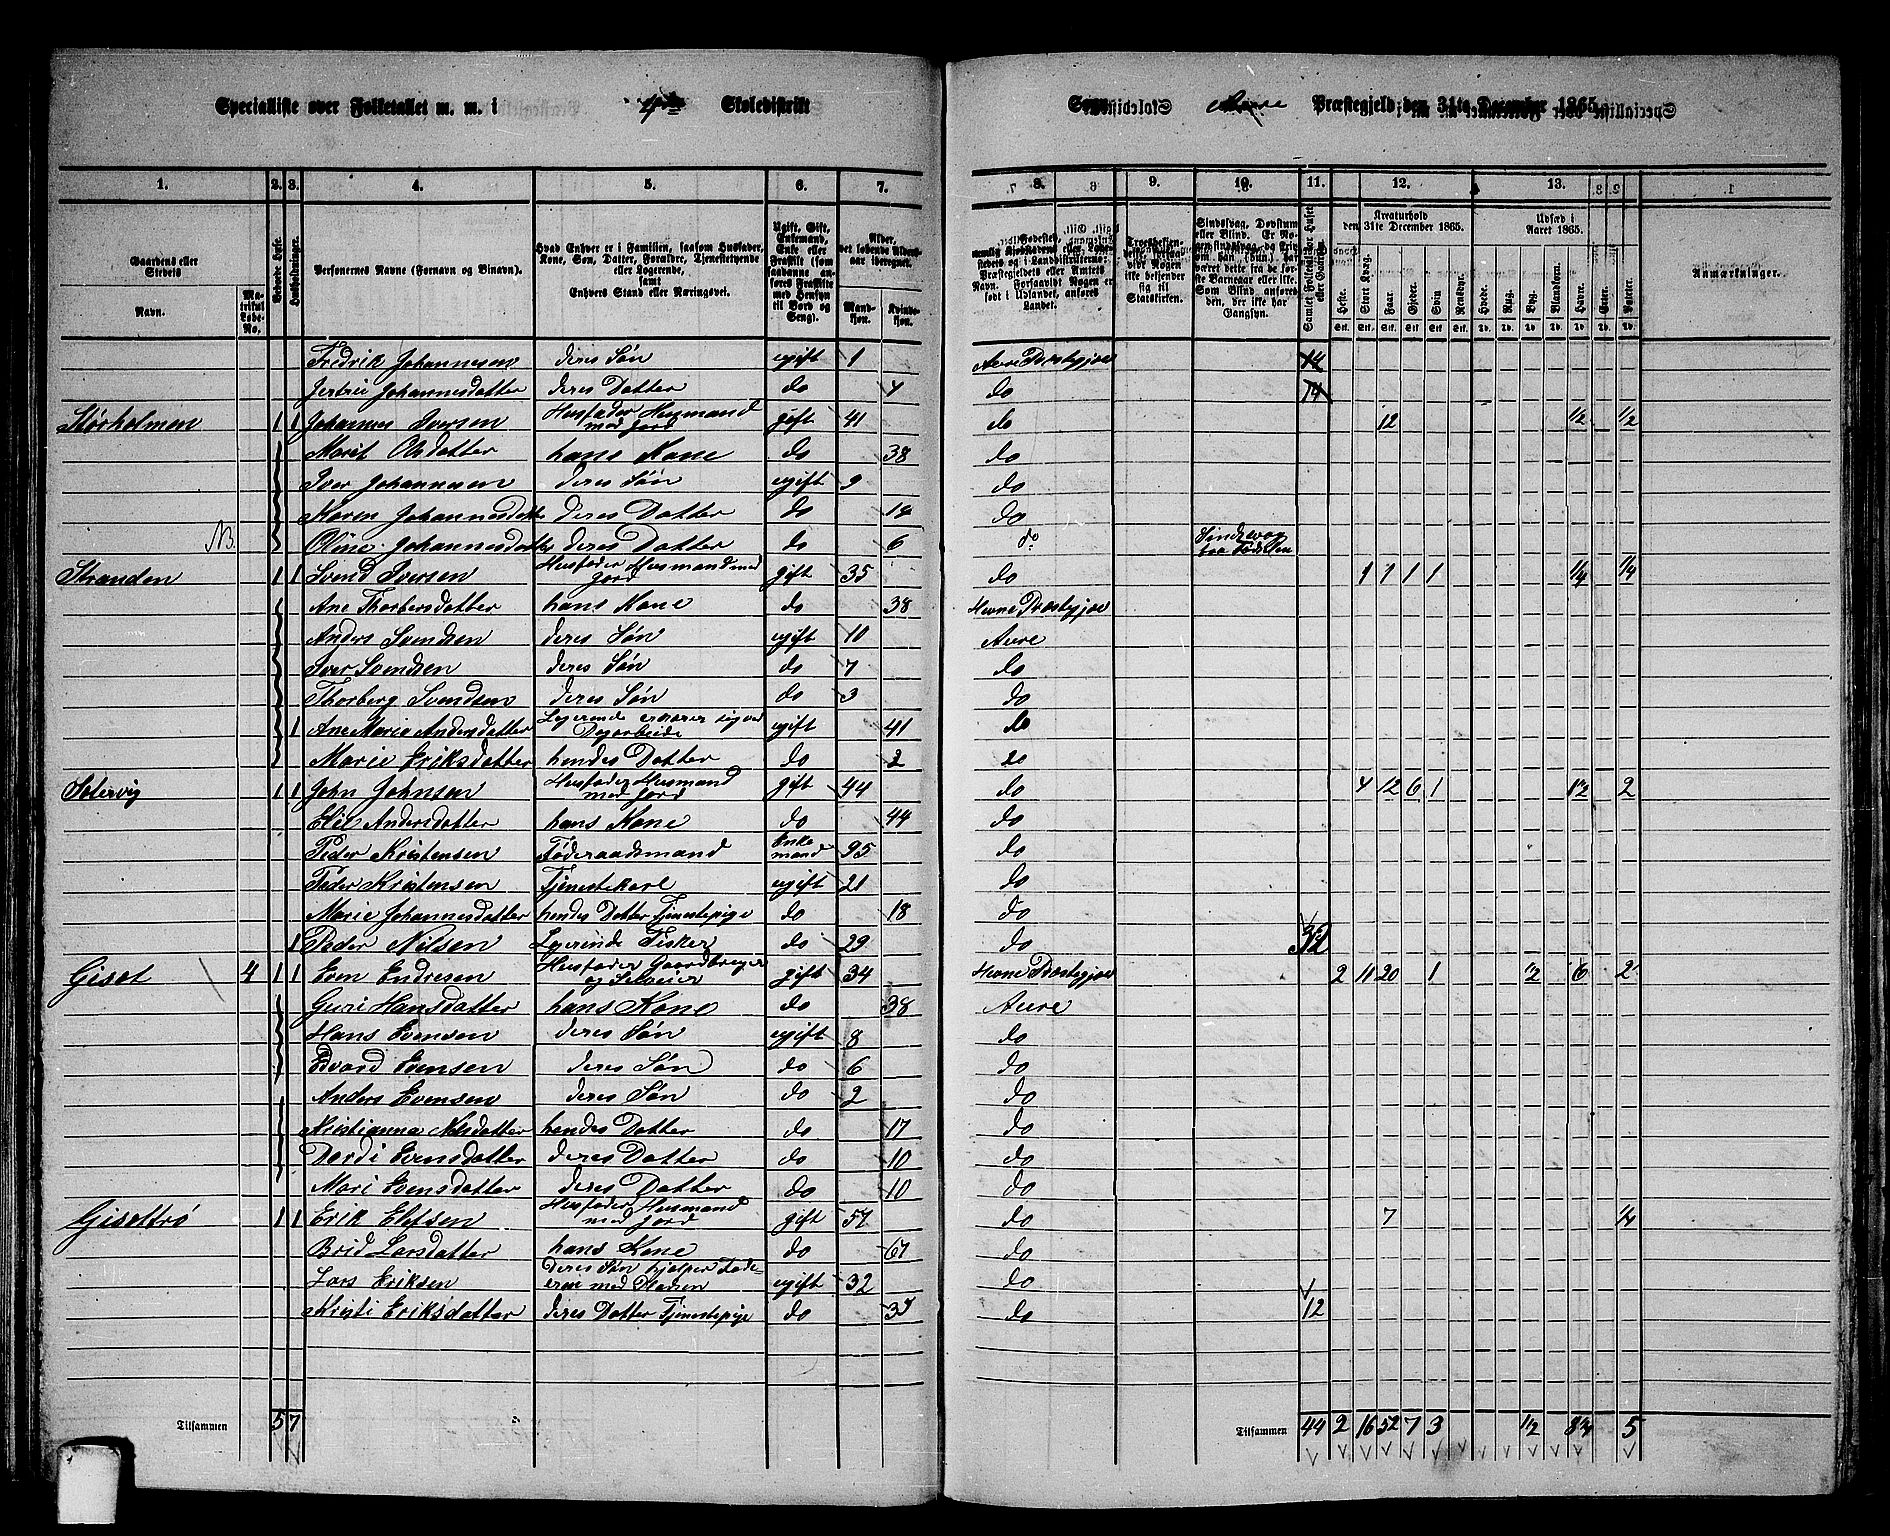 Specialliste over Folketallet m. m. i 4de Skoledistrikt Sogn Aure Præstegjeld den 31te December 1865.
1. 2. 3. 4. 5. 6. 7. 8. 9. 10. 11. 12. 13.
Gaardens eller Stedets Navn. Matrikul Løbe-No. Beboede Huse. Husholdninger. Personernes Navne (Fornavn og Binavn). Hvad Enhver er i Familien, saasom Husfader, Kone, Søn, Datter, Forældre, Tjenestetyende eller Logerende, samt Enhvers Stand eller Næringsvei. Ugift, Gift, Enkemand, Enke eller Fraskilt (som saadanne anføres Fraskilte med Hensyn til Bord og Seng). Alder, det løbende Aldersaar iberegnet. Mandkøn. Kvindekøn.
Troesbekjendelse, forsaavidt Nogen ikke bekjender sig til Statskirken. Samlet Folketal for Huset eller Gaarden. Kreaturhold den 31te December 1865. Heste. Stort Kvæg. Faar. Gjeder. Svin. Rensdyr. Udsæd i Aaret 1865. Hvede. Rug. Byg. Blandkorn. Havre. Erter. Poteter. Anmærkninger.
Fredrik Johannesen deres Søn ugift 1 Aure Præstegje 14
Jertrie Johannesdatter deres Datter do 4 do 14
Storholmen 1 1 Johannes Iversen Husfader Husmand med Jord gift 41 do 12 1/2 1/2
Marit Olsdatter hans Kone do 38 do
Iver Johannesen deres Søn ugift 9 do
Maren Johannesdatte deres Datter do 14 do
NB. Oline Johannesdatter deres Datter do 6 do Sindsvag fra Fødselen
Stranden 1 1 Svend Iversen Husfader Husmand med Jord gift 35 do 1 1 1 1 1/4 1/4
Ane Thorbersdatter hans Kone do 38 Hevne Præstegje
Anders Svendsen deres Søn ugift 10 Aure
Iver Svendsen deres Søn do 7 do
Thorberg Svendsen deres Søn do 3 do
1 Ane Maria Andersdatter Logerende ernærer sig ved Dagarbeide ugift 41 do
Marie Eriksdatter hendes Datter do 2 do
Solervig 1 1 John Johnsen Husfader Husmand med Jord gift 44 do 4 12 6 1 1 1/2 2
Eliē Andersdatter hans Kone do 44 do
Peder Kristensen Føderaadsmand Enkemand 95 do
Peder Kristensen Tjenestekarl ugift 21 do
Marie Johannesdatter hendes Datter Tjenestepige do 18 do
1 Peder Nilsen Logerende Fisker do 29 do
Giset 4 1 1 Even Endresen Husfader Gaardbruger og Selveier gift 34 Hevne Præstegje 2 11 20 1 1/2 6 2
Guri Hansdatter hans Kone do 38 Aure
Hans Evensen deres Søn ugift 8 do
Edvard Evensen deres Søn do 6 do
Anders Evensen deres Søn do 2 do
Kristianna Nilsdatter hendes Datter do 17 do
Dordi Evensdatter deres Datter do 10 do
Mari Evensdatter deres Datter do 10 do
Gisettrø 1 1 Erik Elefsen Husfader Husmand med Jord gift 57 do 7 1/4
Brid Larsdatter hans Kone do 67 do
Lars Eriksen deres Søn hjelper Faderen med Pladsen ugift 32 do
Kristi Eriksdatter deres Datter Tjenestepige do 35 do 12
Tilsammen 5 7 Tilsammen 44 2 16 52 7 3 1/2 8 1/4 5